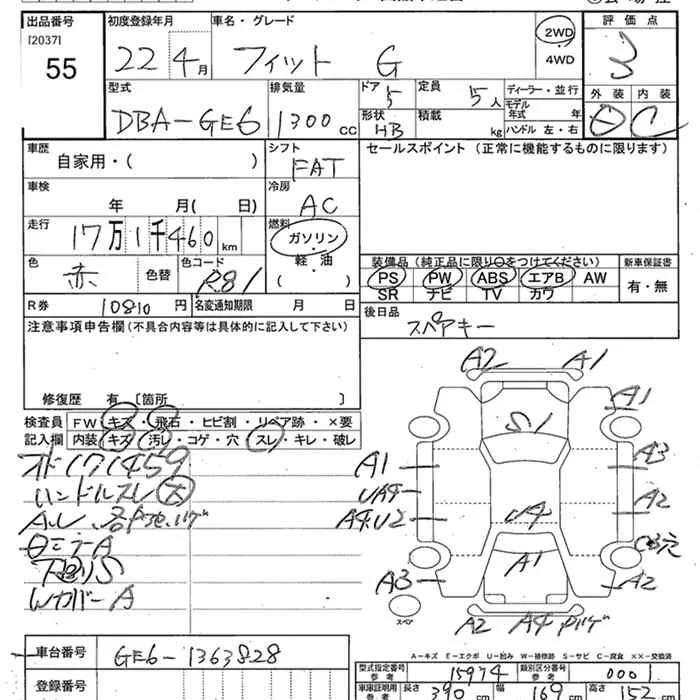 出品番号 初度登録年月 車名・グレード 2WD 評価点
[2037] 22年 4月 フィット G 4WD 3
55
型式 排気量 ドア 定員 ディーラー・並行 外装 内装
DBA-GE6 1300cc 5 5人 モデル年式 年 C
形状 積載 ハンドル 左・右
HB kg
車歴 シフト セールスポイント (正常に機能するものに限ります)
自家用・( ) FAT
車検 冷房
年 月( 日) AC
走行 燃料
17万1千460km ガソリン
軽・油
( )
色 色コード 装備品 (純正品に限り○をつけてください) 新車保証書
赤 色替 R81 PS PW ABS エアB AW 有・無
SR ナビ TV カワ
R券 10810円 名変通知期限 月 日 後日品
スペアキー
注意事項申告欄 (不具合内容等は具体的に記入して下さい)
修復歴 有 [箇所 ]
検査員 FW キズ・飛石・ヒビ割・リペア跡・×要
記入欄 内装 キズ 汚レ・コゲ・穴 スレ・キレ・破レ
オドメ171459
ハンドルスレ大
Wカバー A
A2 A1
A1
S1
A1 A3
UA4 A2
A4.U2 U4
A1
A3 A2
スペア
A2 A4
A-キズ E-エクボ U-凹み W-補修跡 S-サビ C-腐食 XX-交換済
車台番号 GE6-1363828
型式指定番号 参考 15974 類別区分番号 参考 0001
登録番号 車庫証明用 参考 長さ 390cm 幅 169cm 高さ 152cm